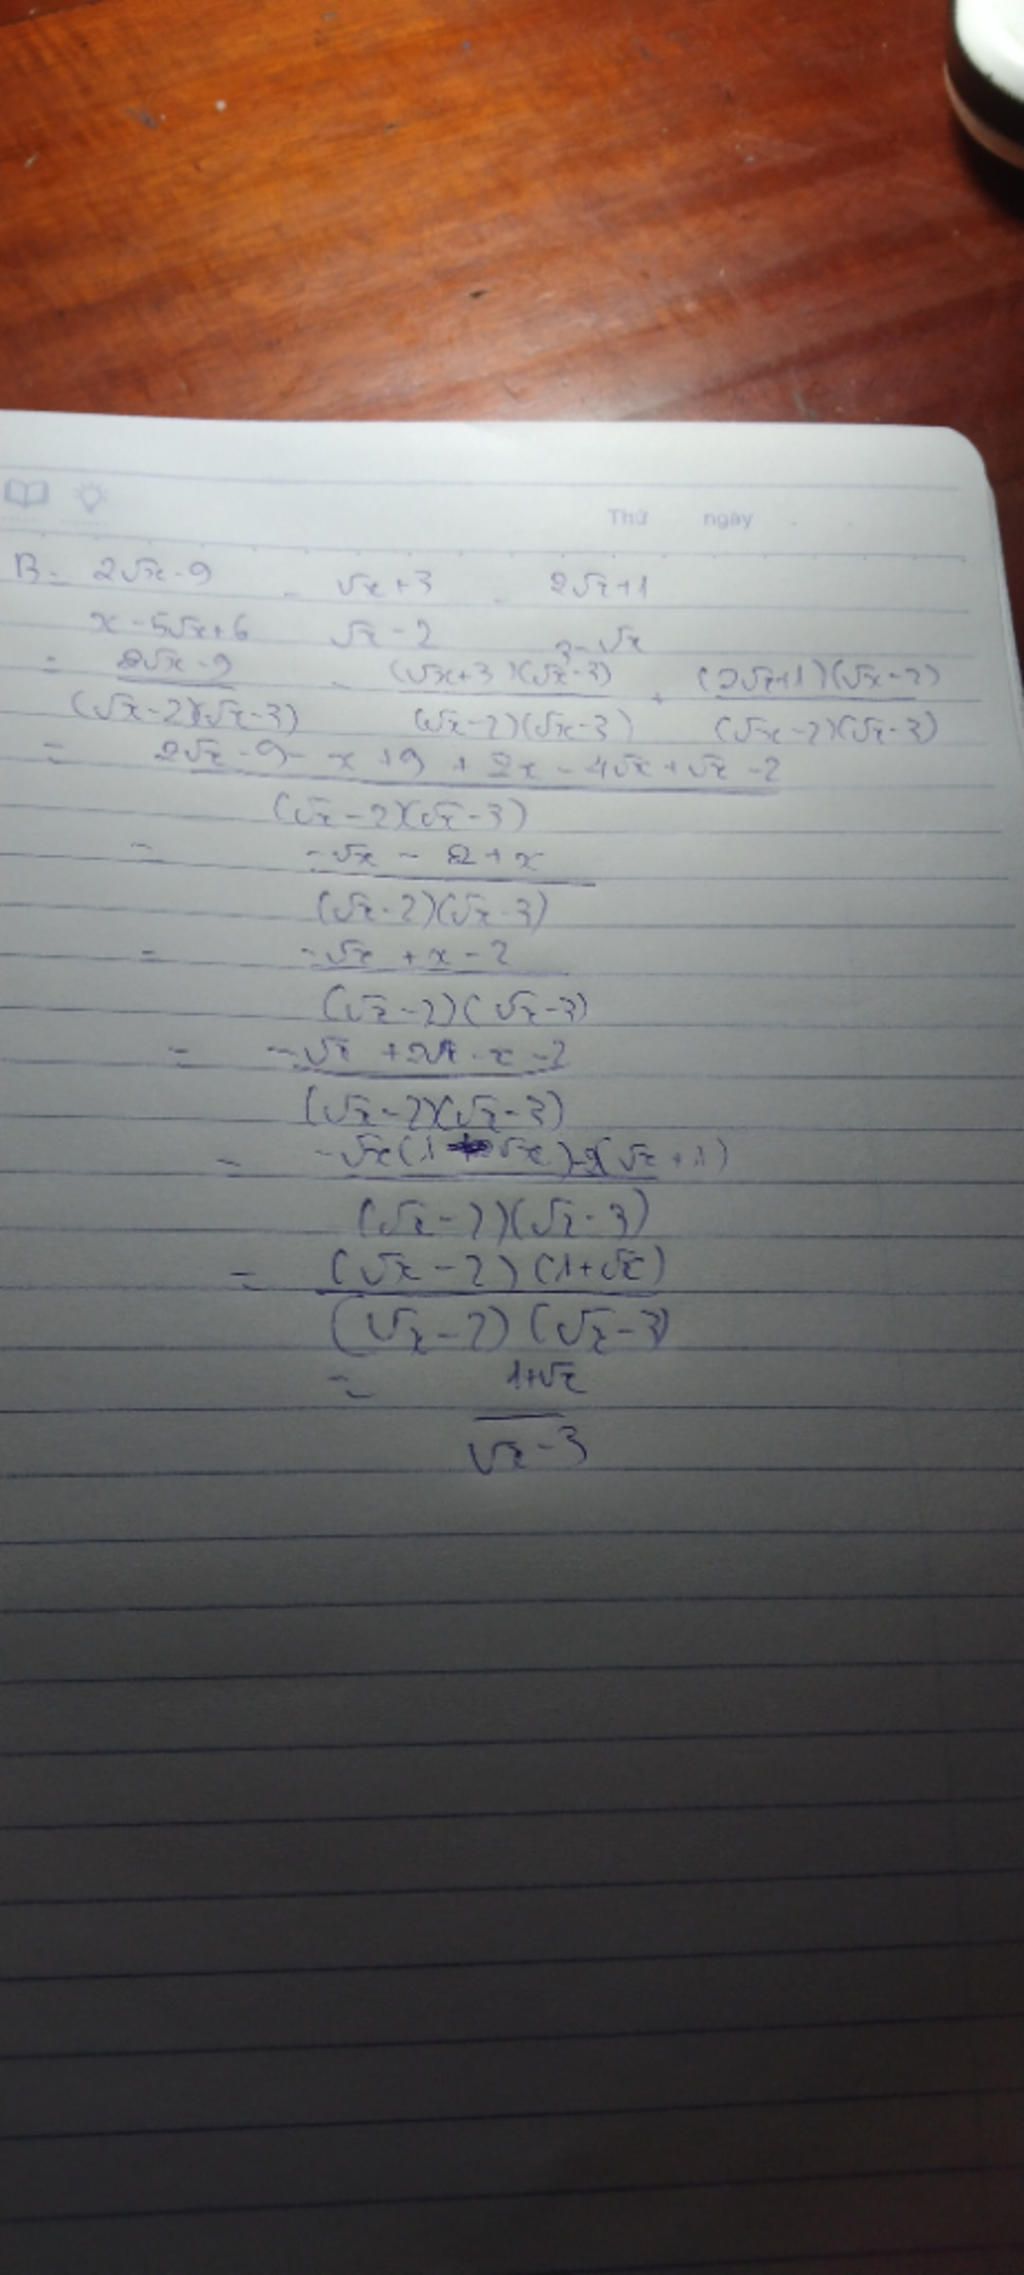 Thứ ngày
B = 2√x - 9 - √x + 3 - 2√x + 1
x - 5√x + 6 √x - 2 3 - √x
= 2√x - 9 - (√x + 3)(√x - 3) + (2√x + 1)(√x - 2)
(√x - 2)(√x - 3) (√x - 2)(√x - 3) (√x - 2)(√x - 3)
= 2√x - 9 - x + 9 + 2x - 4√x + √x - 2
(√x - 2)(√x - 3)
= -√x - 2 + x
(√x - 2)(√x - 3)
= -√x + x - 2
(√x - 2)(√x - 3)
= -√x + 2√x - x - 2
(√x - 2)(√x - 3)
= -√x(1 √x) - 2(√x + 1)
(√x - 2)(√x - 3)
= (√x - 2)(1 + √x)
(√x - 2)(√x - 3)
= 1 + √x
√x - 3